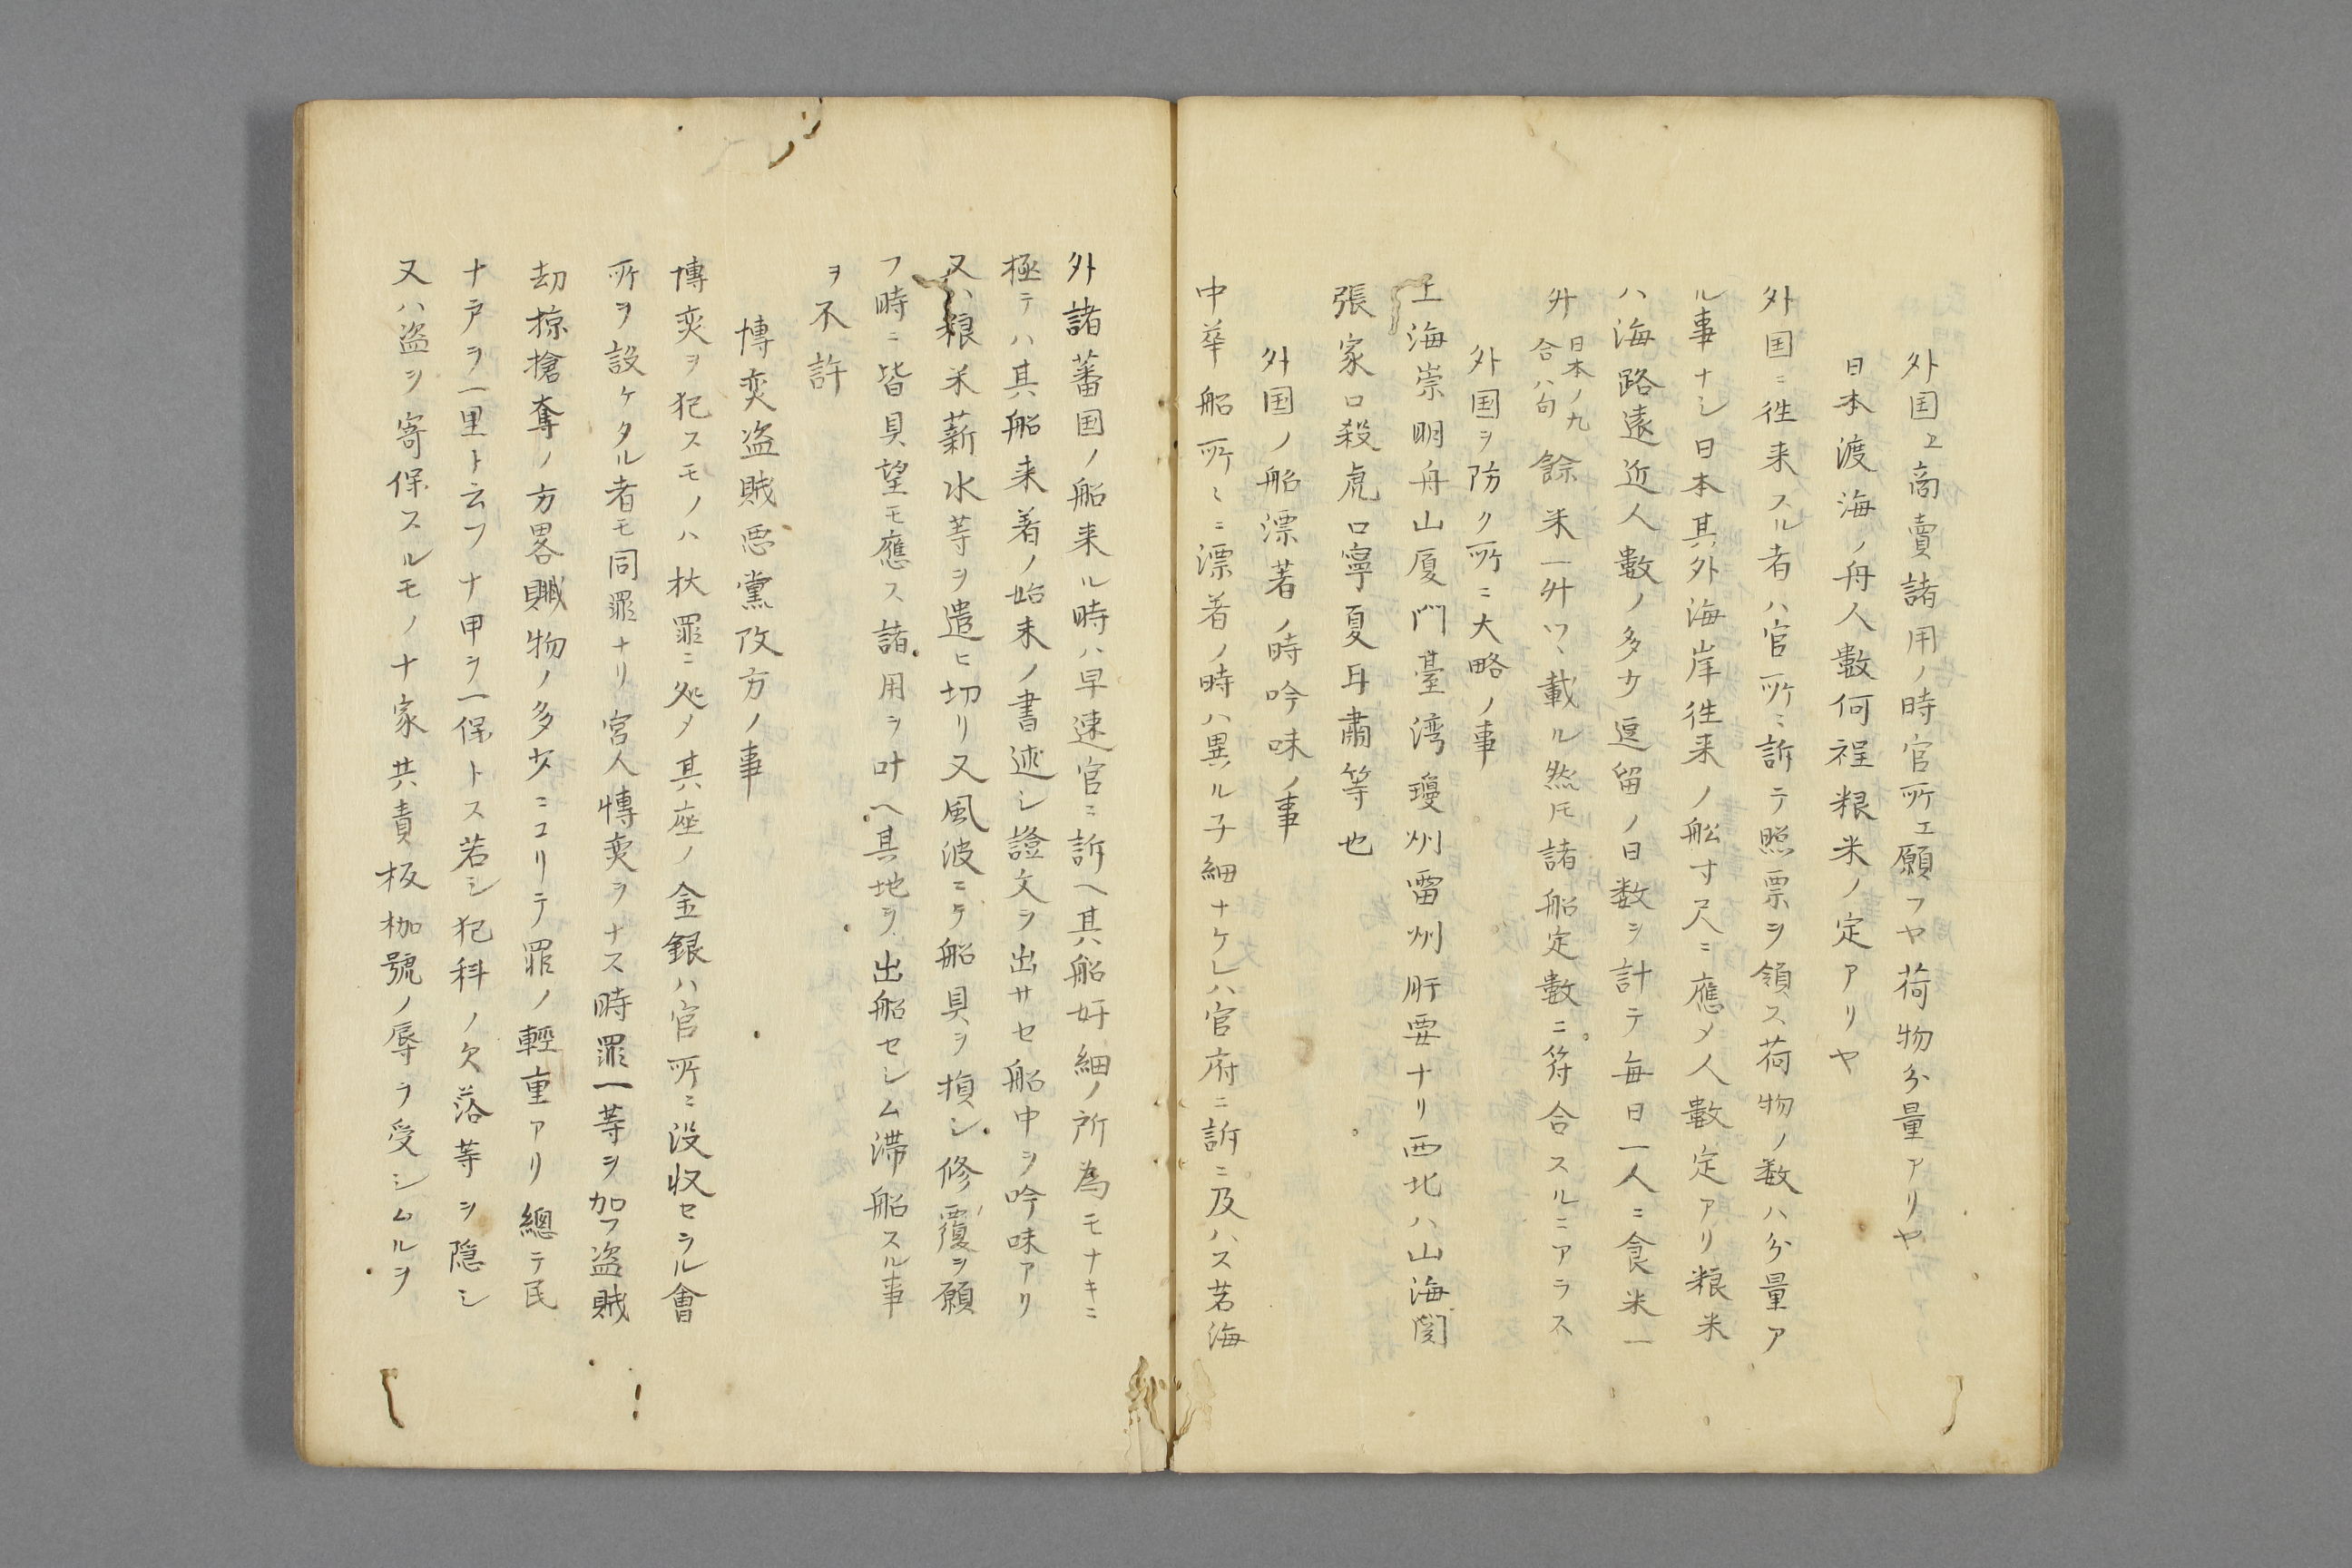 外国エ商賣諸用ノ時官所エ願フヤ荷物分量アリヤ
日本渡海ノ舟人數何程粮米ノ定アリヤ
外国ニ徃来スル者ハ官所ニ訴テ照票ヲ領ス荷物ノ数ハ分量ア
ル事ナシ日本其外海岸徃来ノ舩寸尺ニ應メ人數定アリ粮米
ハ海路遠近人數ノ多少逗留ノ日数ヲ計テ毎日一人ニ食米一
升日本ノ九合八勺餘米一升ツヽ載ル然𪜈諸船定數ニ符合スルニアラス
外国ヲ防ク所ニ大略ノ事
上海崇明舟山厦門臺湾瓊州雷州肝要ナリ西北ハ山海関
張家口殺虎口寧夏耳肅等也
外国ノ船漂著ノ時吟味ノ事
中華船所ミニ漂着ノ時ハ異ル子細ナケレハ官府ニ訴ニ及ハス若海
外諸蕃国ノ船来ル時ハ早速官ニ訴ヘ其船奸細ノ所為モナキニ
極テハ其船来着ノ始末ノ書述シ證文ヲ出サセ船中ヲ吟味アリ
又ハ粮米薪水等ヲ遣ヒ切リ又風波ニテ船具ヲ損シ修覆ヲ願
フ時ニ皆具望モ應ス諸用ヲ叶ヘ其地ヲ出船セシム滞船スル事
ヲ不許
博奕盗賊悪黨改方ノ事
博奕ヲ犯スモノハ杖罪ニ処メ其座ノ金銀ハ官所ニ没収セラル會
所ヲ設ケタル者モ同罪ナリ宮人博奕ヲナス時罪一等ヲ加フ盗賊
劫掠搶奪ノ方畧贓物ノ多少ニコリテ罪ノ輕重アリ總テ民
十戸ヲ一里ト云フ十甲ヲ一保トス若シ犯科ノ欠落等ヲ隠シ
又ハ盗ヲ寄保スルモノ十家共責板枷號ノ辱ヲ受シムルヲ